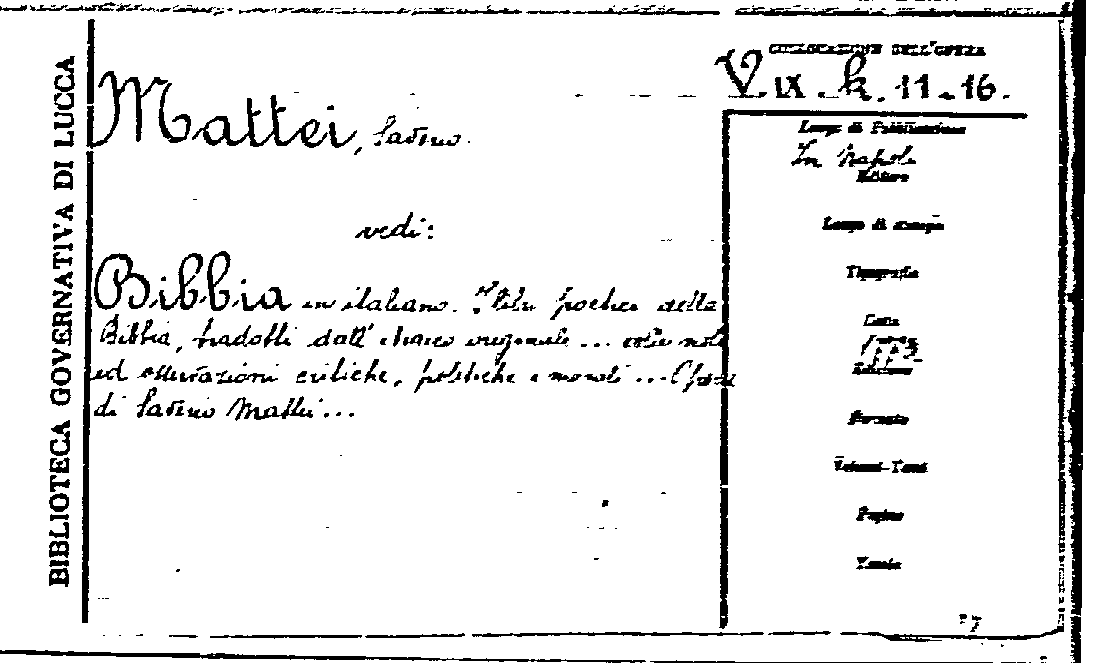 BIBLIOTECA GOVERNATIVA DI LUCCA
COLLOCAZIONE DELL'OPERA
V. IX. k. 11-16.
Mattei, Saverio.
vedi:
Bibbia in italiano. I libri poetici della
Bibbia, tradotti dall' ebraico originale ... colle note
ed osservazioni critiche, politiche e morali ... Opera
di Saverio Mattei ...
Luogo di Pubblicazione
In Napoli
Editore
Luogo di stampa
Tipografia
Data
Edizione
Formato
Volumi-Tomi
Pagine
Tavole